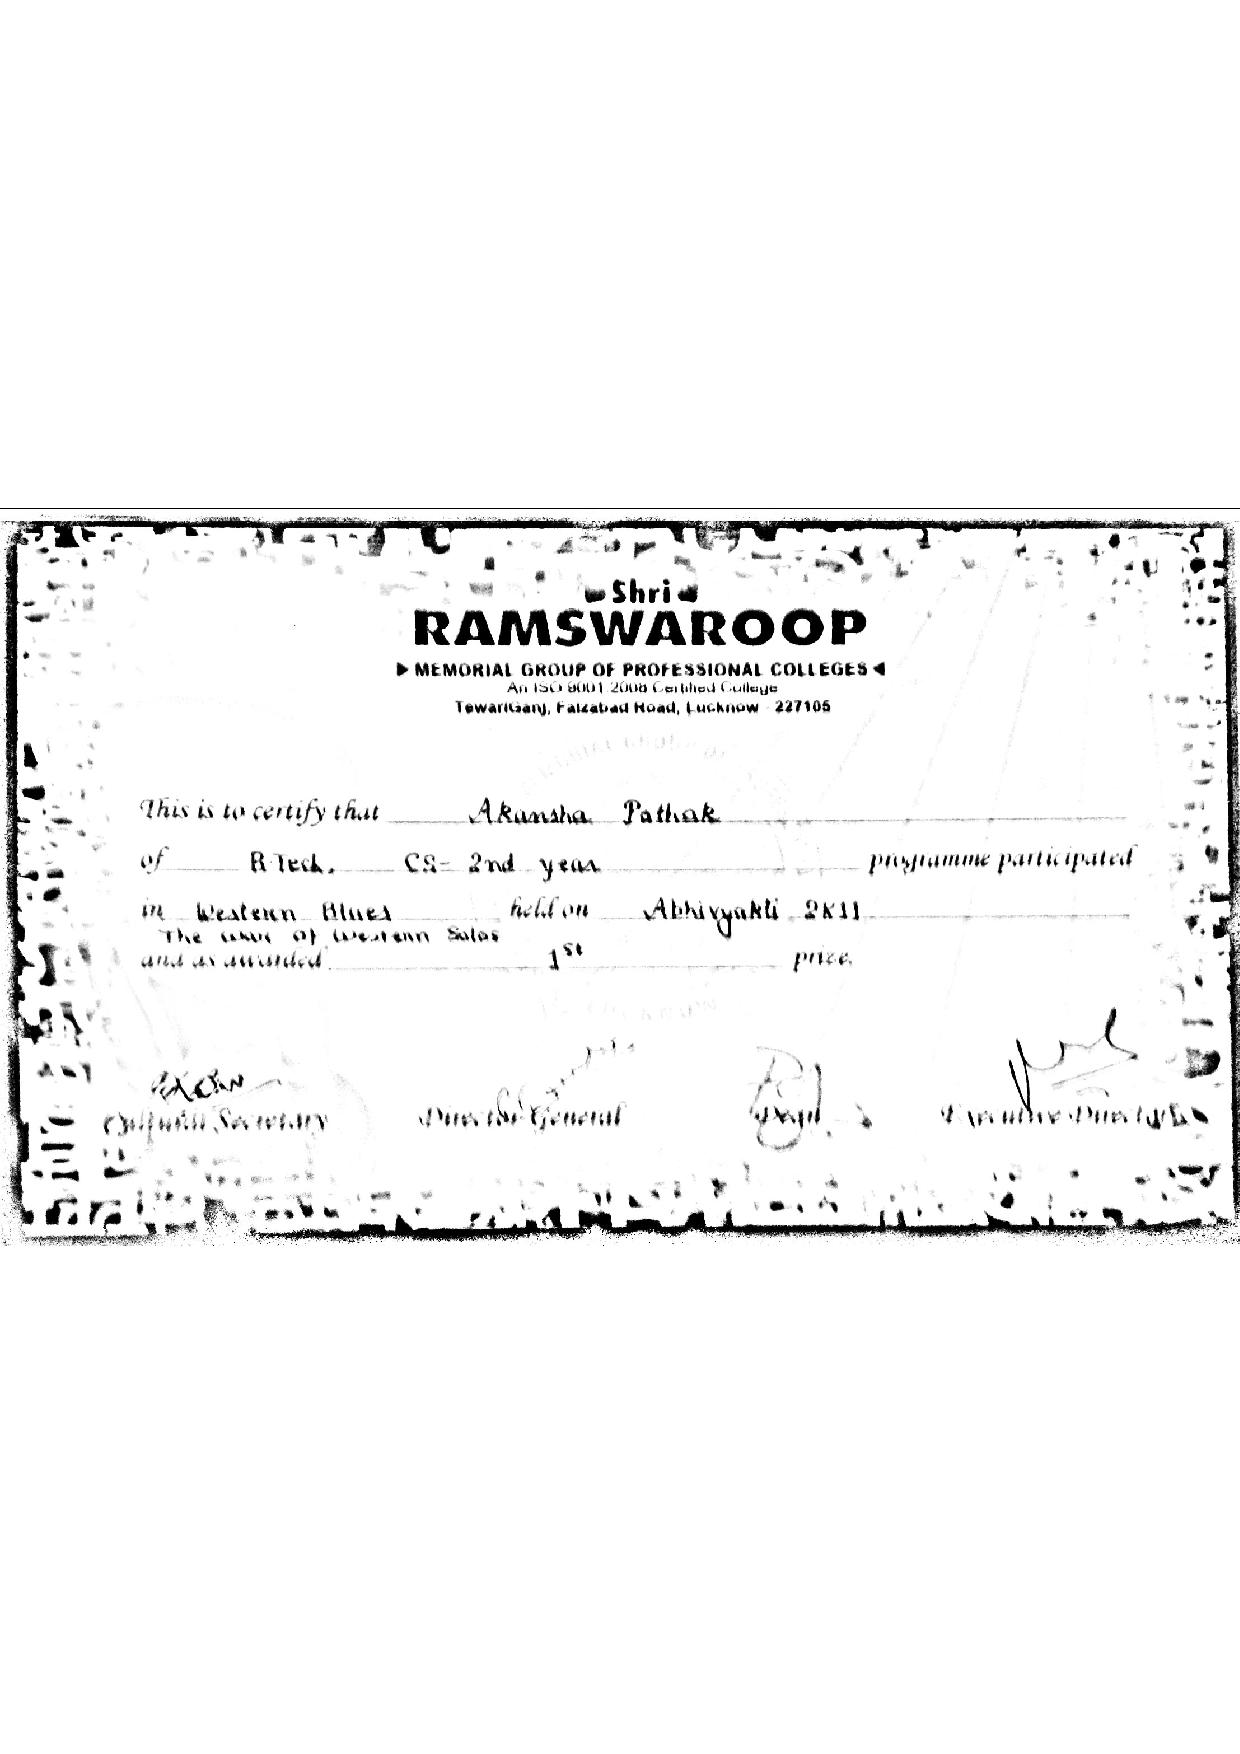 Shri
RAMSWAROOP
MEMORIAL GROUP OF PROFESSIONAL COLLEGES
An ISO 9001:2008 Certified College
Tewariganj, Faizabad Road, Lucknow - 227105
This is to certify that Akansha Pathak
of B.Tech. CS- 2nd year programme participated
in Western Blues held on Abhivyakti 2K11
The of Western Solos
and as awarded 1st prize.
Cultural Secretary Director General Dean Executive Director